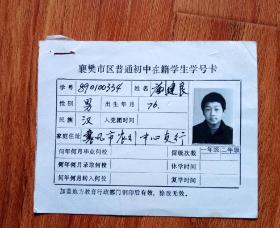 襄樊市区普通初中在籍学生学号卡
学号 890100334 姓名 健良
性别 男 出生年月 76.
民族 汉 入党团时间
家庭住址 襄樊市农行中心支行
何年何月毕业何校 留级次数 一年级 二年级
何年何月录取何校 休学时间
何年何月转入何校 复学时间
加盖地方教育行政部门钢印后有效，涂改无效。